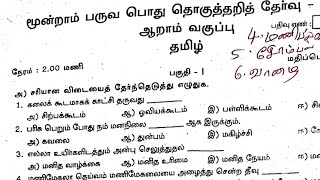 மூன்றாம் பருவ பொது தொகுத்தறித் தேர்வு -
ஆறாம் வகுப்பு
தமிழ்
பதிவு எண் :
4. மணிப
5. சோம்பல்
6. வாழை
நேரம் : 2.00 மணி
பகுதி - I
மதிப்பெ
அ) சரியான விடையைத் தேர்ந்தெடுத்து எழுதுக.
1. கலைக் கூடமாகக் காட்சி தருவது
அ) சிற்பக்கூடம்
ஆ) ஓவியக்கூடம்
இ) பள்ளிக்கூடம்
ஈ) சி
2. பரிசு பெறும் போது நம் மனநிலை ஆக இருக்கும்.
அ) கவலை
ஆ) துன்பம்
இ) மகிழ்ச்சி
ஈ)
3. எல்லா உயிர்களிடத்தும் அன்பு செலுத்துதல்
அ) மனித வாழ்க்கை
ஆ) மனித உரிமை
இ) மனித நேயம்
ஈ) ம
4. மணிமேகலா தெய்வம் மணிமேகலையை அழைத்துச் சென்ற தீவு